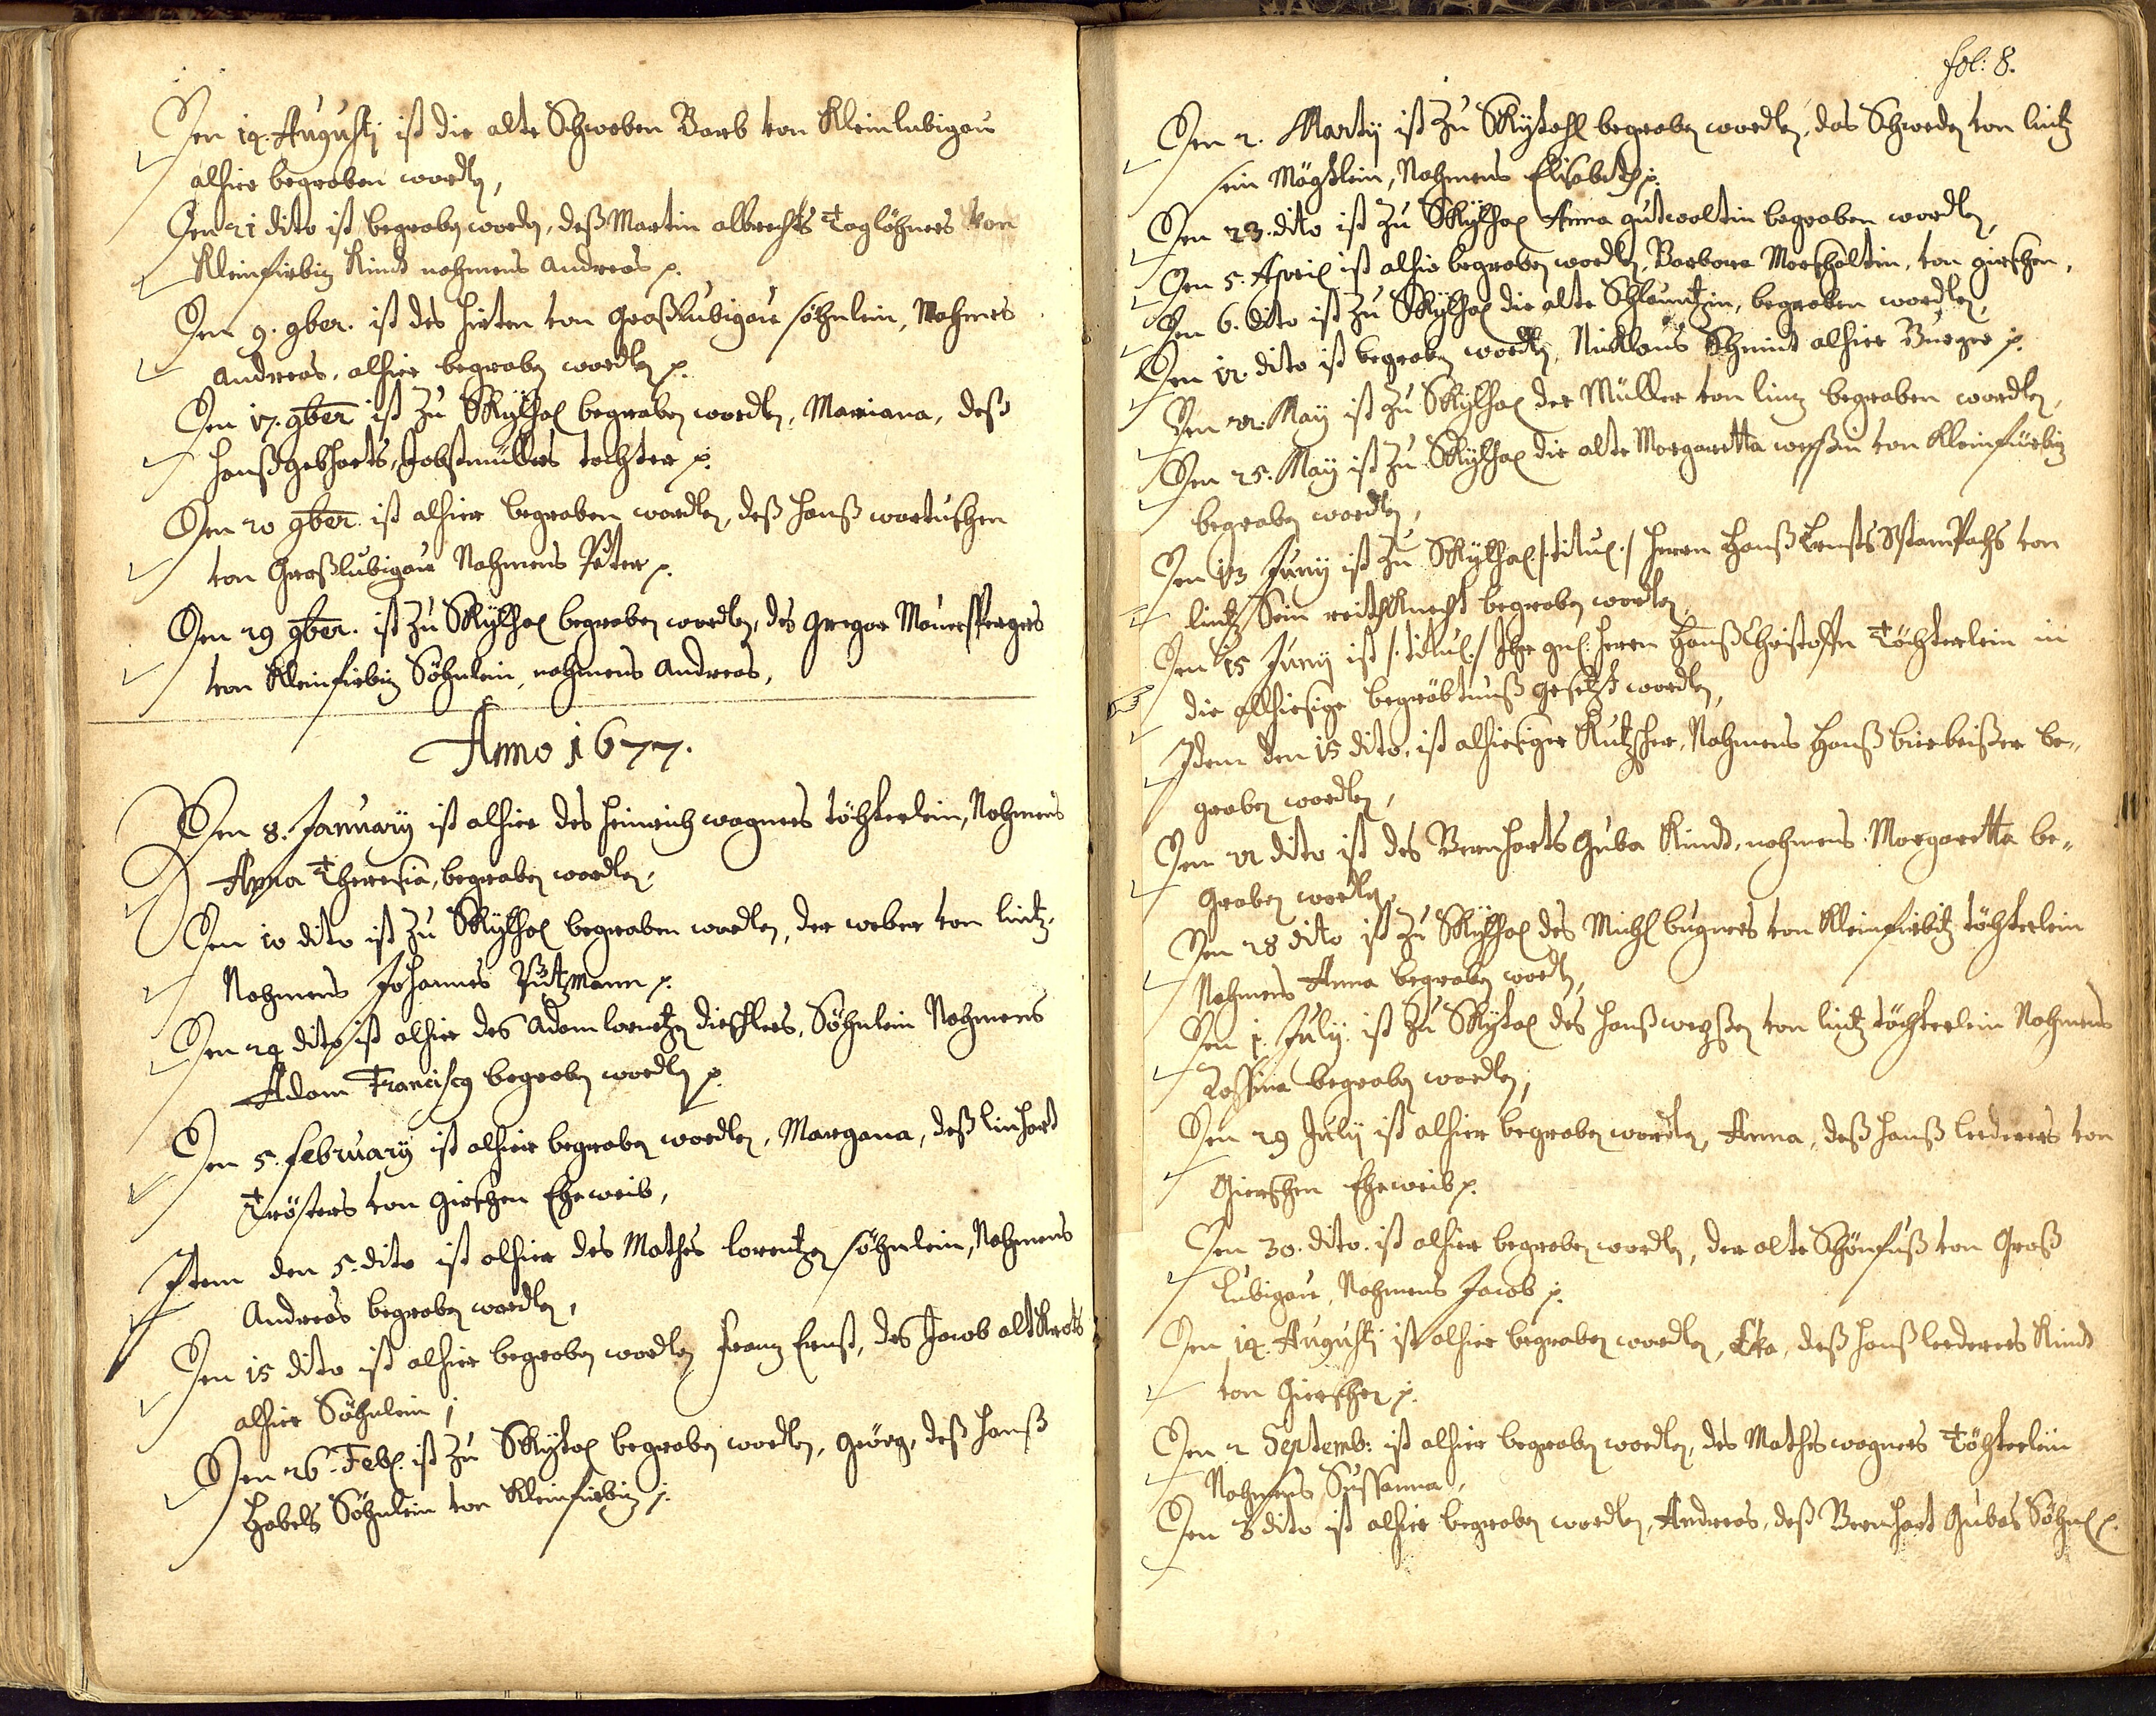 Den 14. Augusti ist die alte Schwoben Barb von Kleinlubigau
alhier begraben worden,
Den 21 dito ist begraben worden, deß Martin albrechts Taglöhners von
Kleinfirbiz Kindt nahmens Andreas p.
Den 9. 9ber. ist des hirten von Großlubigau söhnlein, Nahmes
Andreas, alhier begraben worden p.
Den 17. 9ber ist zu begraben worden, Mariana, deß
Hanß Gebharts, Tochter p.
Den 20 9ber. ist alhier begraben worden, deß Hanß
von Großlubigau Nahmens Peter p.
Den 29 9ber. ist zu begraben worden, des Gregor
von Kleinfirbiz Söhnlein, nahmens Andreas,
Anno 1677.
Den 8. January ist alhier des Heinrich wagners töchterlein, Nahmens
Anna Theresia, begraben worden,
Den 10 dito ist zu begraben worden, der weber von lintz,
Nahmens Johannes Pützmann p.
Den 24 dito ist alhier des Adam lorentz Söhnlein Nahmens
Adam Franciscg begraben worden p.
Den 5. february ist alhier begraben worden, Margana, deß linhart
Trösters von Girschen Eheweib,
Item den 5. dito ist alhier des Mathes lorentzen söhnlein, Nahmens
Andreas begraben worden,
Den 15 dito ist alhier begraben worden Franz Ernst, des Jacob
alhier Söhnlein;
Den 26. Feb. ist zu begraben worden, Geörg, deß Hanß
Habels Söhnlein von Kleinfirbiz p.
fol: 8.
Den 2. Marty ist zu begraben worden, das Schweden von lintz
sein Mägdlein, Nahmens Elisabeth p.
Den 23. dito ist zu Anna gutwaltin begraben worden,
Den 5. April ist alhie begraben worden, Barbara, von girschen,
Den 6. dito ist zu die alte begraben worden,
Den 12. dito ist begraben worden, Nicklaus Schmint alhier Burger p.
Den 22. May ist zu der Müller von linz begraben worden,
Den 25. May ist zu die alte Margaretta von Kleinfürbiz
begraben worden,
Den 13 Juny ist zu /:titul:/ Herrn Hanß Ernsts von
lintz Sein reithKnecht begraben worden,
Den 15 Juny ist /:titul:/ Ihr gn: Herrn Hanß Christoffen Töchterlein in
die allhiesige begräbtnuß gesetzt worden,
Idem den 15 dito. ist alhiesiger Kutscher, Nahmens Hanß birbeißer be-
graben worden,
Den 21 dito ist des Bernharts Guba Kindt, nahmens Margaretta be-
graben worden,
Den 28 dito ist zu des Michl bugners von Kleinfirbitz töchterlein
Nahmens Anna begraben worden,
Den 1. July ist zu des Hanß von lintz töchterlein Nahmens
Rossina begraben worden;
Den 29 July ist alhier begraben worden, Anna, deß Hanß lederers von
Gierschen Eheweib p.
Den 30. dito. ist alhier begraben worden, der alte Schönfuß von Groß
Lubigau, Nahmens Jacob p.
Den 14. Augusti ist alhier begraben worden, Eva, deß Hanß lederers Kindt
von Gierschen p.
Den 2 Septemb: ist alhier begraben worden, des Mathes wagners Töchterlein
Nahmens Sussanna,
Den 3 dito ist alhier begraben worden, Andreas, deß Bernhart Gubas Söhnl p.